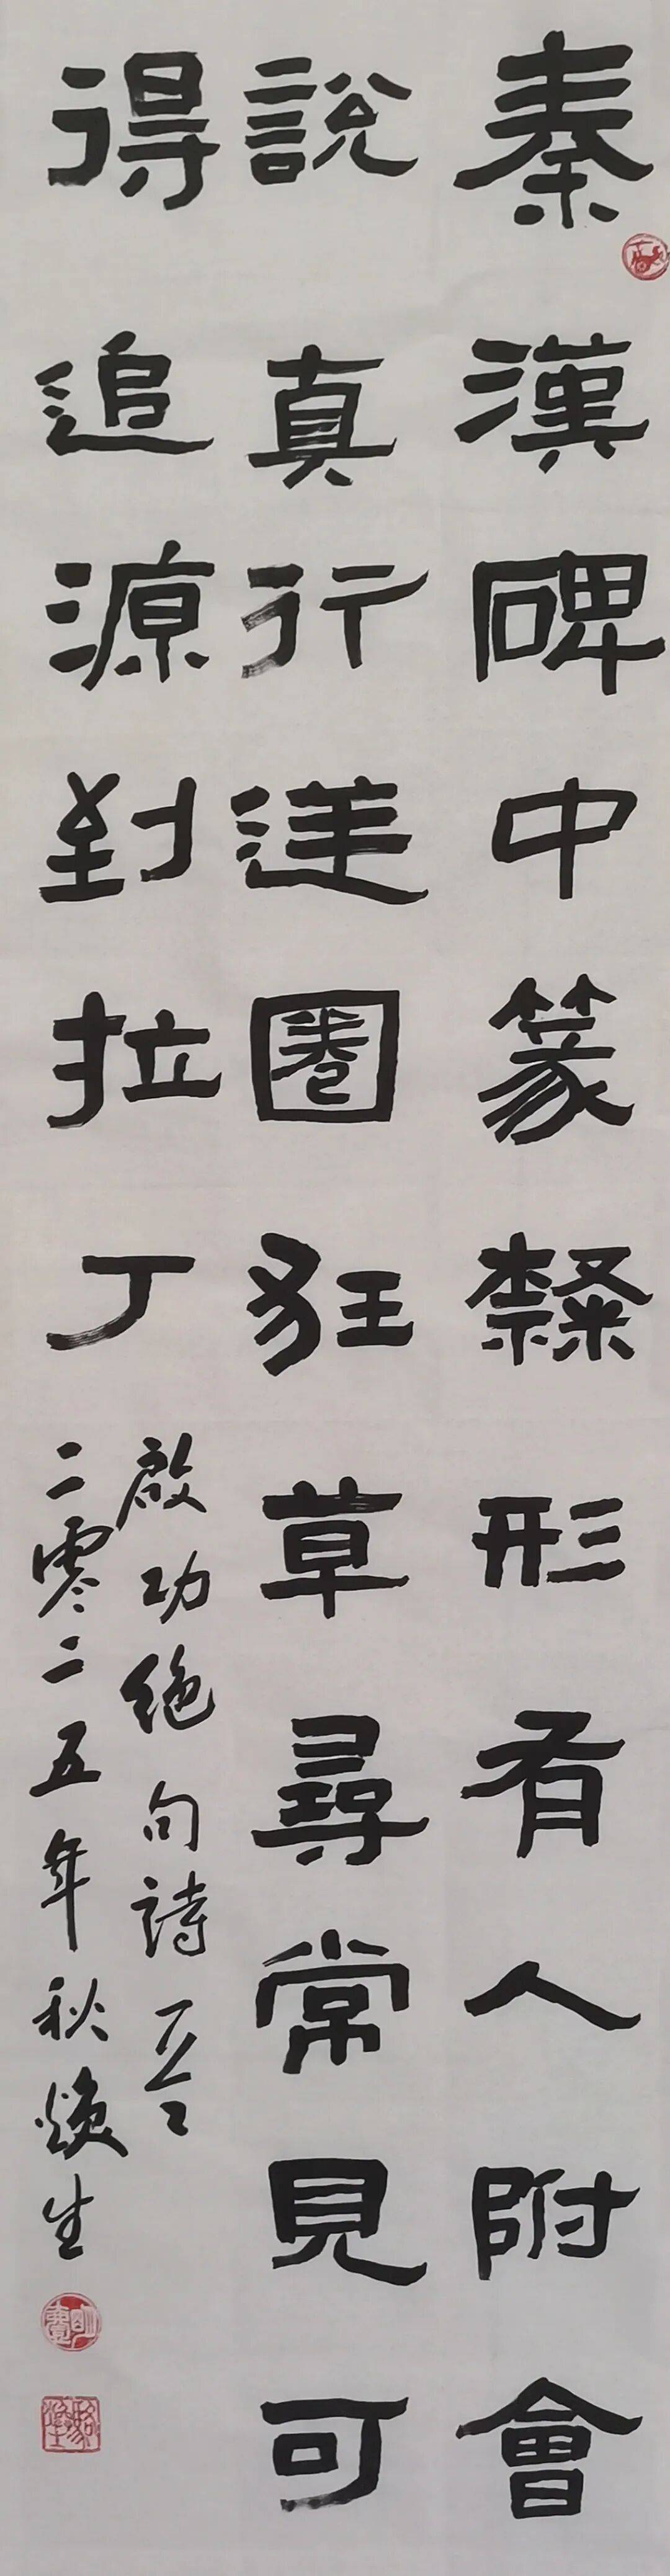 秦漢碑中篆隸形有人附會
說真行逆圈狂草尋常見可
得追源到拉丁
啟功絕句詩一首
二零二五年秋煥生